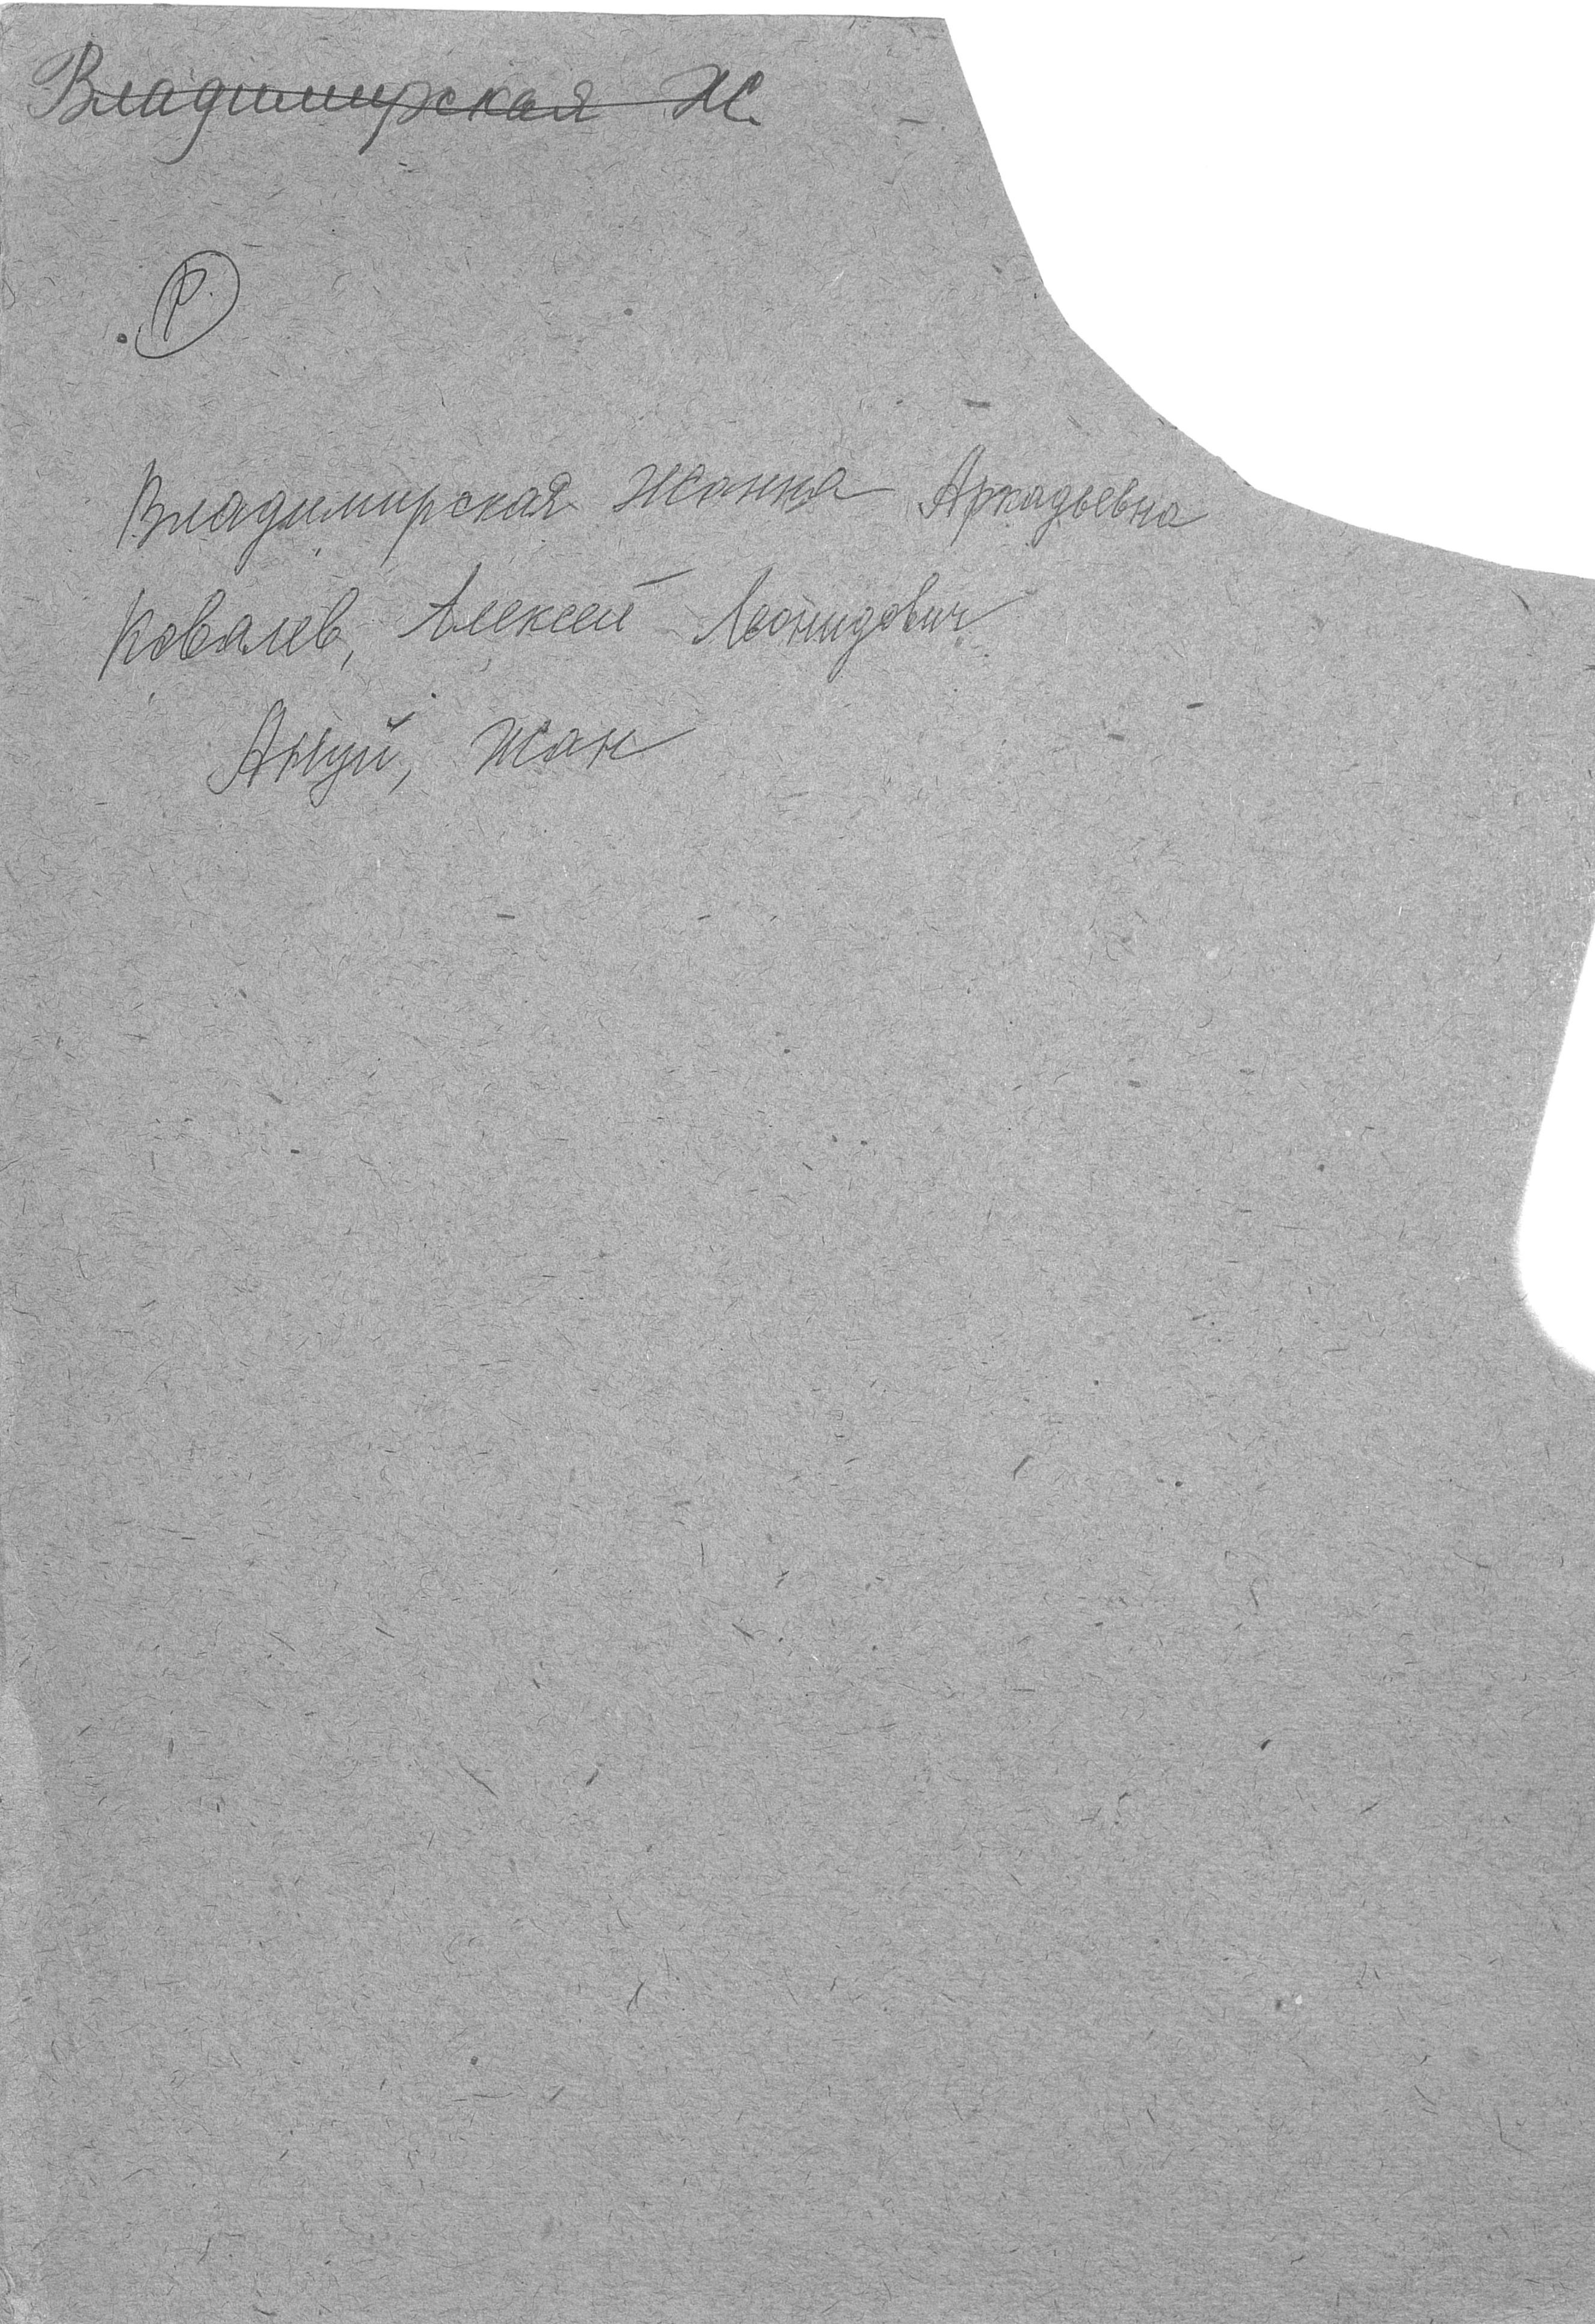 Владимирская Ж.
Р
Владимирская Жанна Аркадьевна
Ковалев, Алексей Леонидович
Ануй, Жан